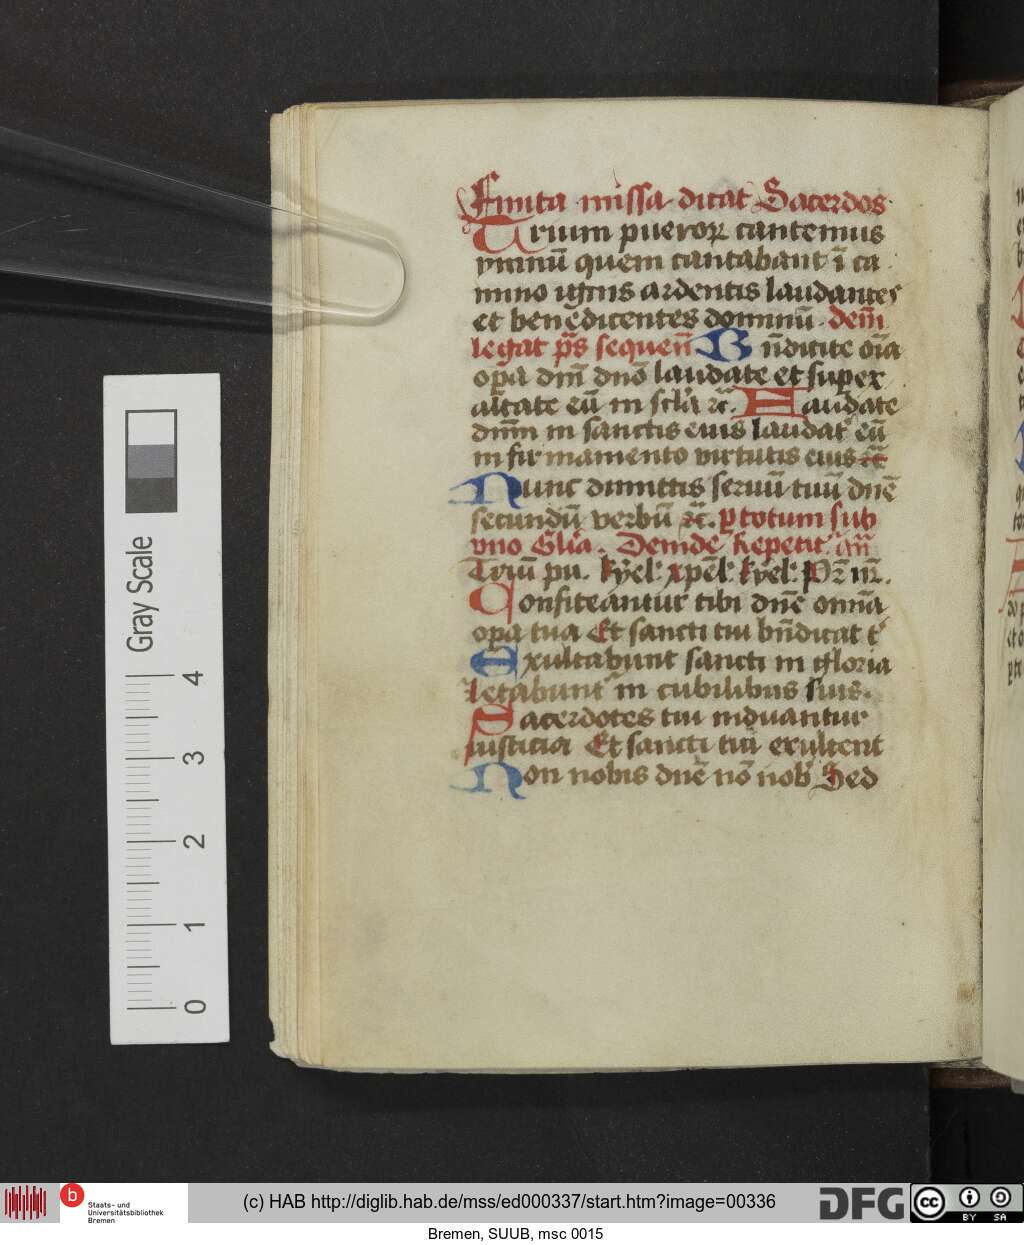 Finita missa dicat Sacerdos
Trium pueroꝝ cantemus
ymnū quem cantabant ī ca
mino ignis ardentis laudantes
et benedicentes dominū. deīn
legat p̄s sequen̄ Bn̄dicite oīa
opa dn̄i dn̄o laudate et super
altate eū in scl̄a ⁊c̄. Laudate
dn̄m in sanctis eius laudat̄ eū
in firmamento virtutis eius ⁊c̄
Nunc dimittis seruū tuū dn̄e
secundū verbū ⁊c̄. ꝑ totum sub
vno Gl̄ia. Deinde Repetit̄ an̄
Triū pu. kyel̄. xpēl̄. kyel̄. Pr̄ nr̄.
Confiteantur tibi dn̄e omīa
opa tua Et sancti tui bn̄dicāt t̄
Exultabunt sancti in gloria
letabunt̄ in cubilibus suis.
Sacerdotes tui induantur
iusticia Et sancti tui exultent
Non nobis dn̄e nō nob̄ Sed
Gray Scale
0 1 2 3 4
b
Staats- und
Universitätsbibliothek
Bremen
(c) HAB http://diglib.hab.de/mss/ed000337/start.htm?image=00336
DFG
cc BY SA
Bremen, SUUB, msc 0015